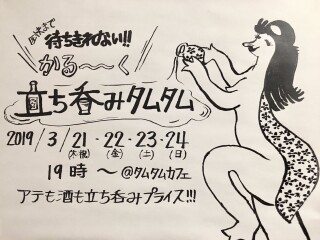 まで
待ちきれない!!
かる〜〜く
立ち呑みタムタム
2019/3/21・22・23・24
(木祝)(金)(土)(日)
19時〜@タムタムカフェ
アテも酒も立ち呑みプライス!!!